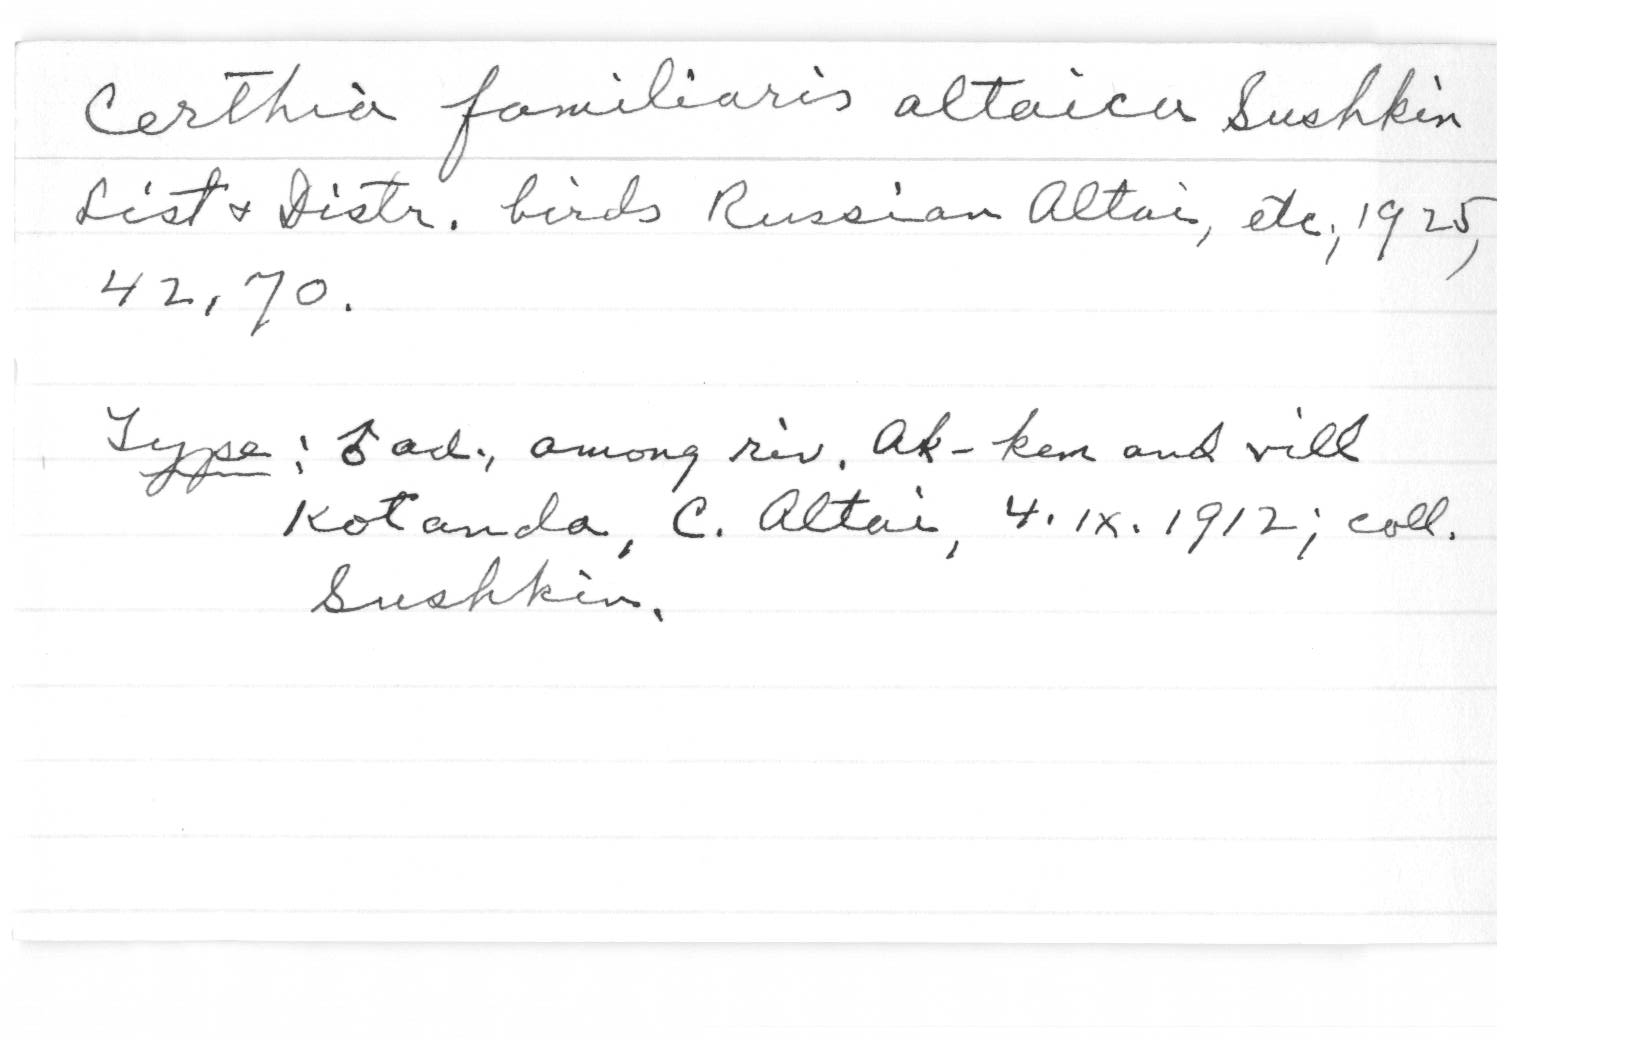 Certhia familiaris altaica Sushkin
List & Distr. birds Russian Altai, etc., 1925,
42, 70.
Type: ♂ ad., among riv. Ak-kem and vill
Kotanda, C. Altai, 4.IX.1912; coll.
Sushkin.